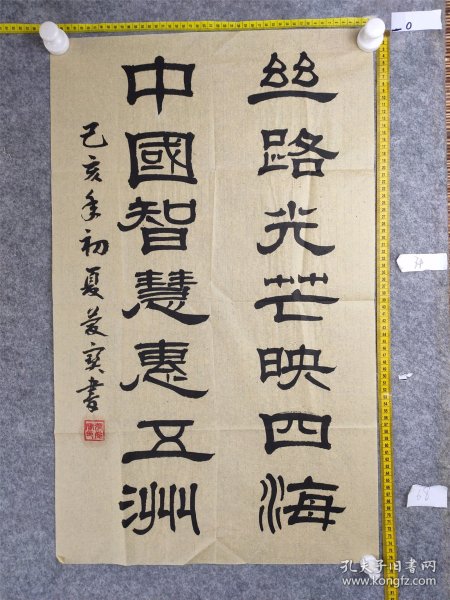 丝路光芒映四海
中國智慧惠五洲
己亥年初夏葵寶書
0
34
68
孔夫子旧书网
www.kongfz.com